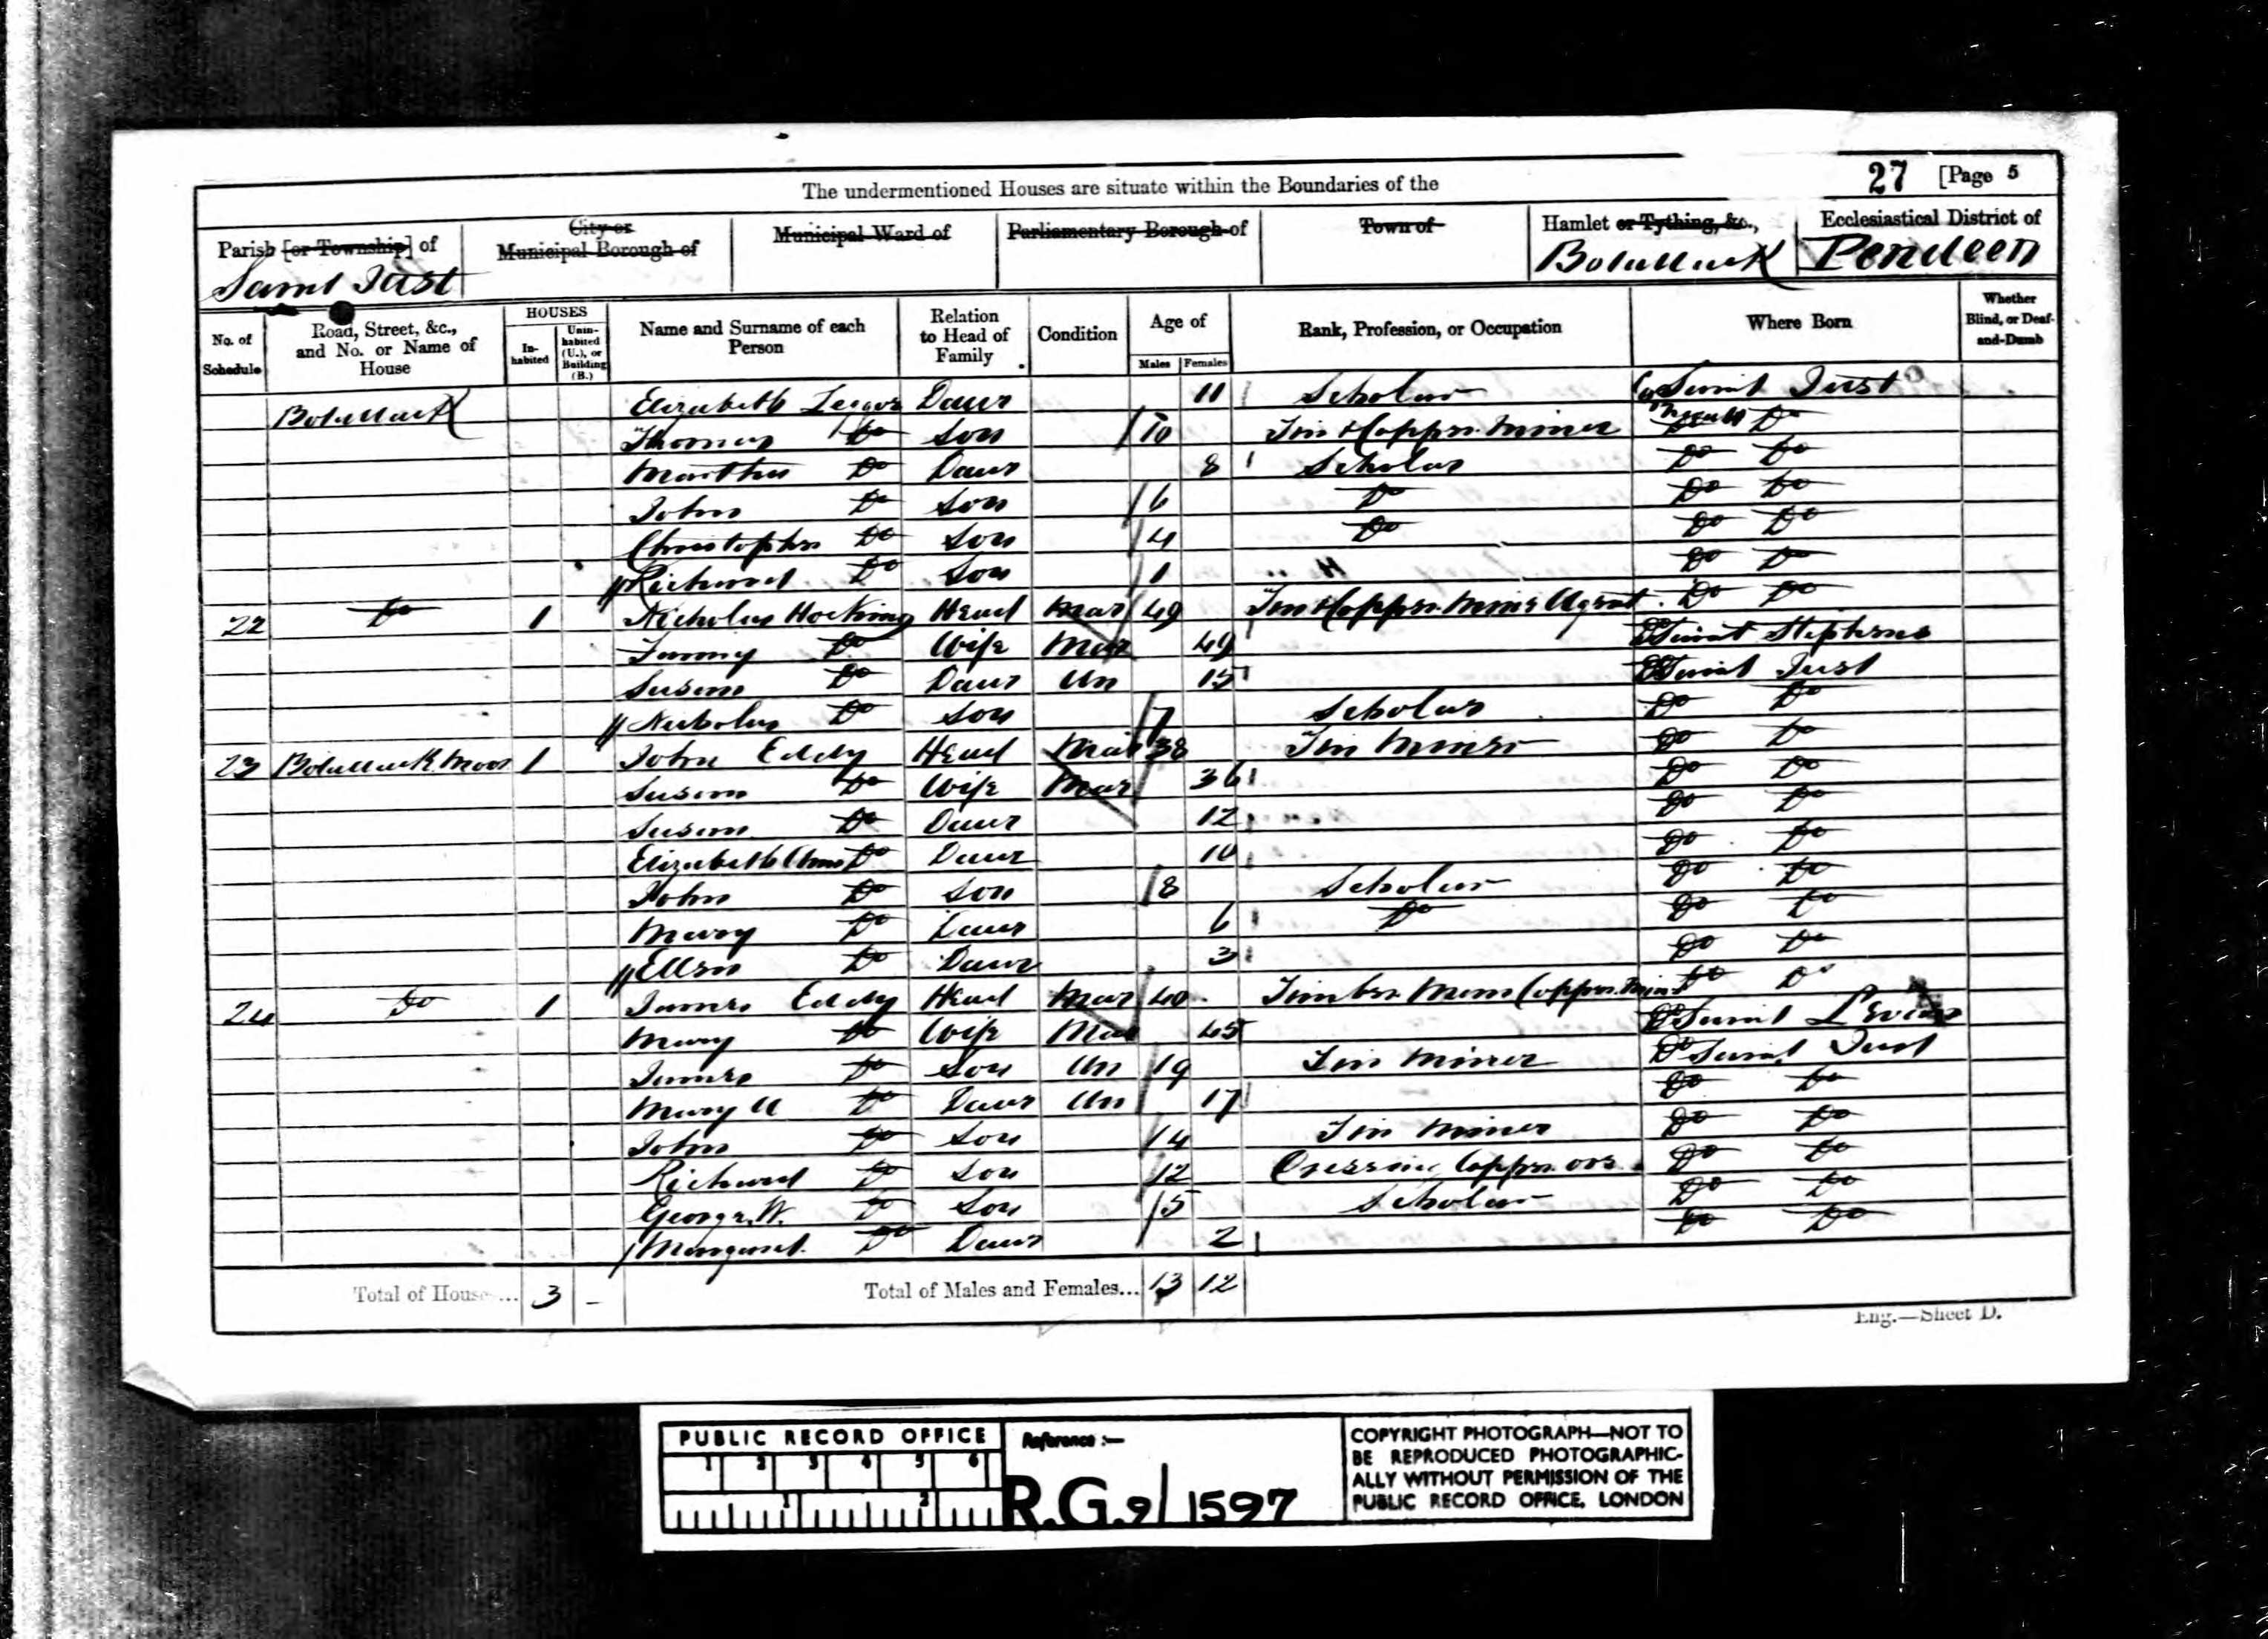 The undermentioned Houses are situate within the Boundaries of the
27 [Page 5
Parish [or Township] of
Saint Just
City or Municipal Borough of
Municipal Ward of
Parliamentary Borough of
Town of
Hamlet or Tything, &c.,
Botallack
Ecclesiastical District of
Pendeen
No. of Schedule
Road, Street, &c., and No. or Name of House
HOUSES
Inhabited
Uninhabited (U.), or Building (B.)
Name and Surname of each Person
Relation to Head of Family
Condition
Age of
Males Females
Rank, Profession, or Occupation
Where Born
Whether Blind, or Deaf-and-Dumb
Botallack Elizabeth Daur 11 Scholar Saint Just
Thomas Do Son 10 Tin & Copper Miner Do
Martha Do Daur 8 Scholar Do Do
John Do Son 6 Do Do Do
Christopher Do Son 4 Do Do Do
Richard Do Son 1 Do Do
22 Do 1 Nicholas Hocking Head Mar 49 Tin & Copper Mine Agent Do Do
Fanny Do Wife Mar 49 Do Saint Stephens
Susan Do Daur Un 15 Do Saint Just
Nicholas Do Son 7 Scholar Do Do
23 Botallack Moor 1 John Eddy Head Mar 38 Tin Miner Do Do
Susan Do Wife Mar 36 Do Do
Susan Do Daur 12 Do Do
Elizabeth Ann Do Daur 10 Do Do
John Do Son 8 Scholar Do Do
Mary Do Daur 6 Do Do Do
Ellen Do Daur 3 Do Do
24 Do 1 James Eddy Head Mar 40 Timber Man Copper Mine Do Do
Mary Do Wife Mar 45 Do Saint Levan
James Do Son Un 19 Tin Miner Do Saint Just
Mary A Do Daur Un 17 Do Do
John Do Son 14 Tin Miner Do Do
Richard Do Son 12 Dressing Copper ore Do Do
George W. Do Son 5 Scholar Do Do
Margaret Do Daur 2 Do Do
Total of Houses... 3 – Total of Males and Females... 13 12
Eng.—Sheet D.
PUBLIC RECORD OFFICE
1 2 3 4 5 6
1 2
Reference :—
R.G. 9/1597
COPYRIGHT PHOTOGRAPH—NOT TO
BE REPRODUCED PHOTOGRAPHIC-
ALLY WITHOUT PERMISSION OF THE
PUBLIC RECORD OFFICE, LONDON